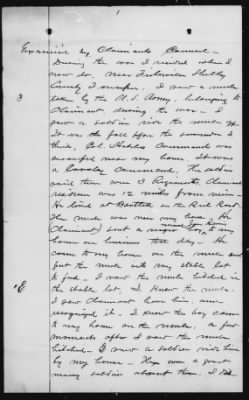 Examined by Claimants Counsel—
During the war I resided where I
now do, near Fisherville Shelby
County Tennessee. I saw a mule
taken by the U.S. Army, belonging to
Claimant during the war— I
saw a soldier ride the mule
It was the fall before the surrender I
think, Col. command was
encamped near my home. It was
a Cavalry command. The soldier
said they were
residence was 12 miles from mine—
He lived at Bartlett on the Rail Road.
The mule was near my home, He
(Claimant) sent a negro to my
home on business that day— He
came to my home on the mule and
put the mule into my stable lot
to feed. I saw the mule hitched in
the stable lot, I knew the mule.
I saw Claimant have him, and
recognized it. I know the boy came
to my home on the mule, a few
moments after I saw the mule
hitched— I saw a soldier ride him
by my home— There were a great
many soldiers about then. I
3
8